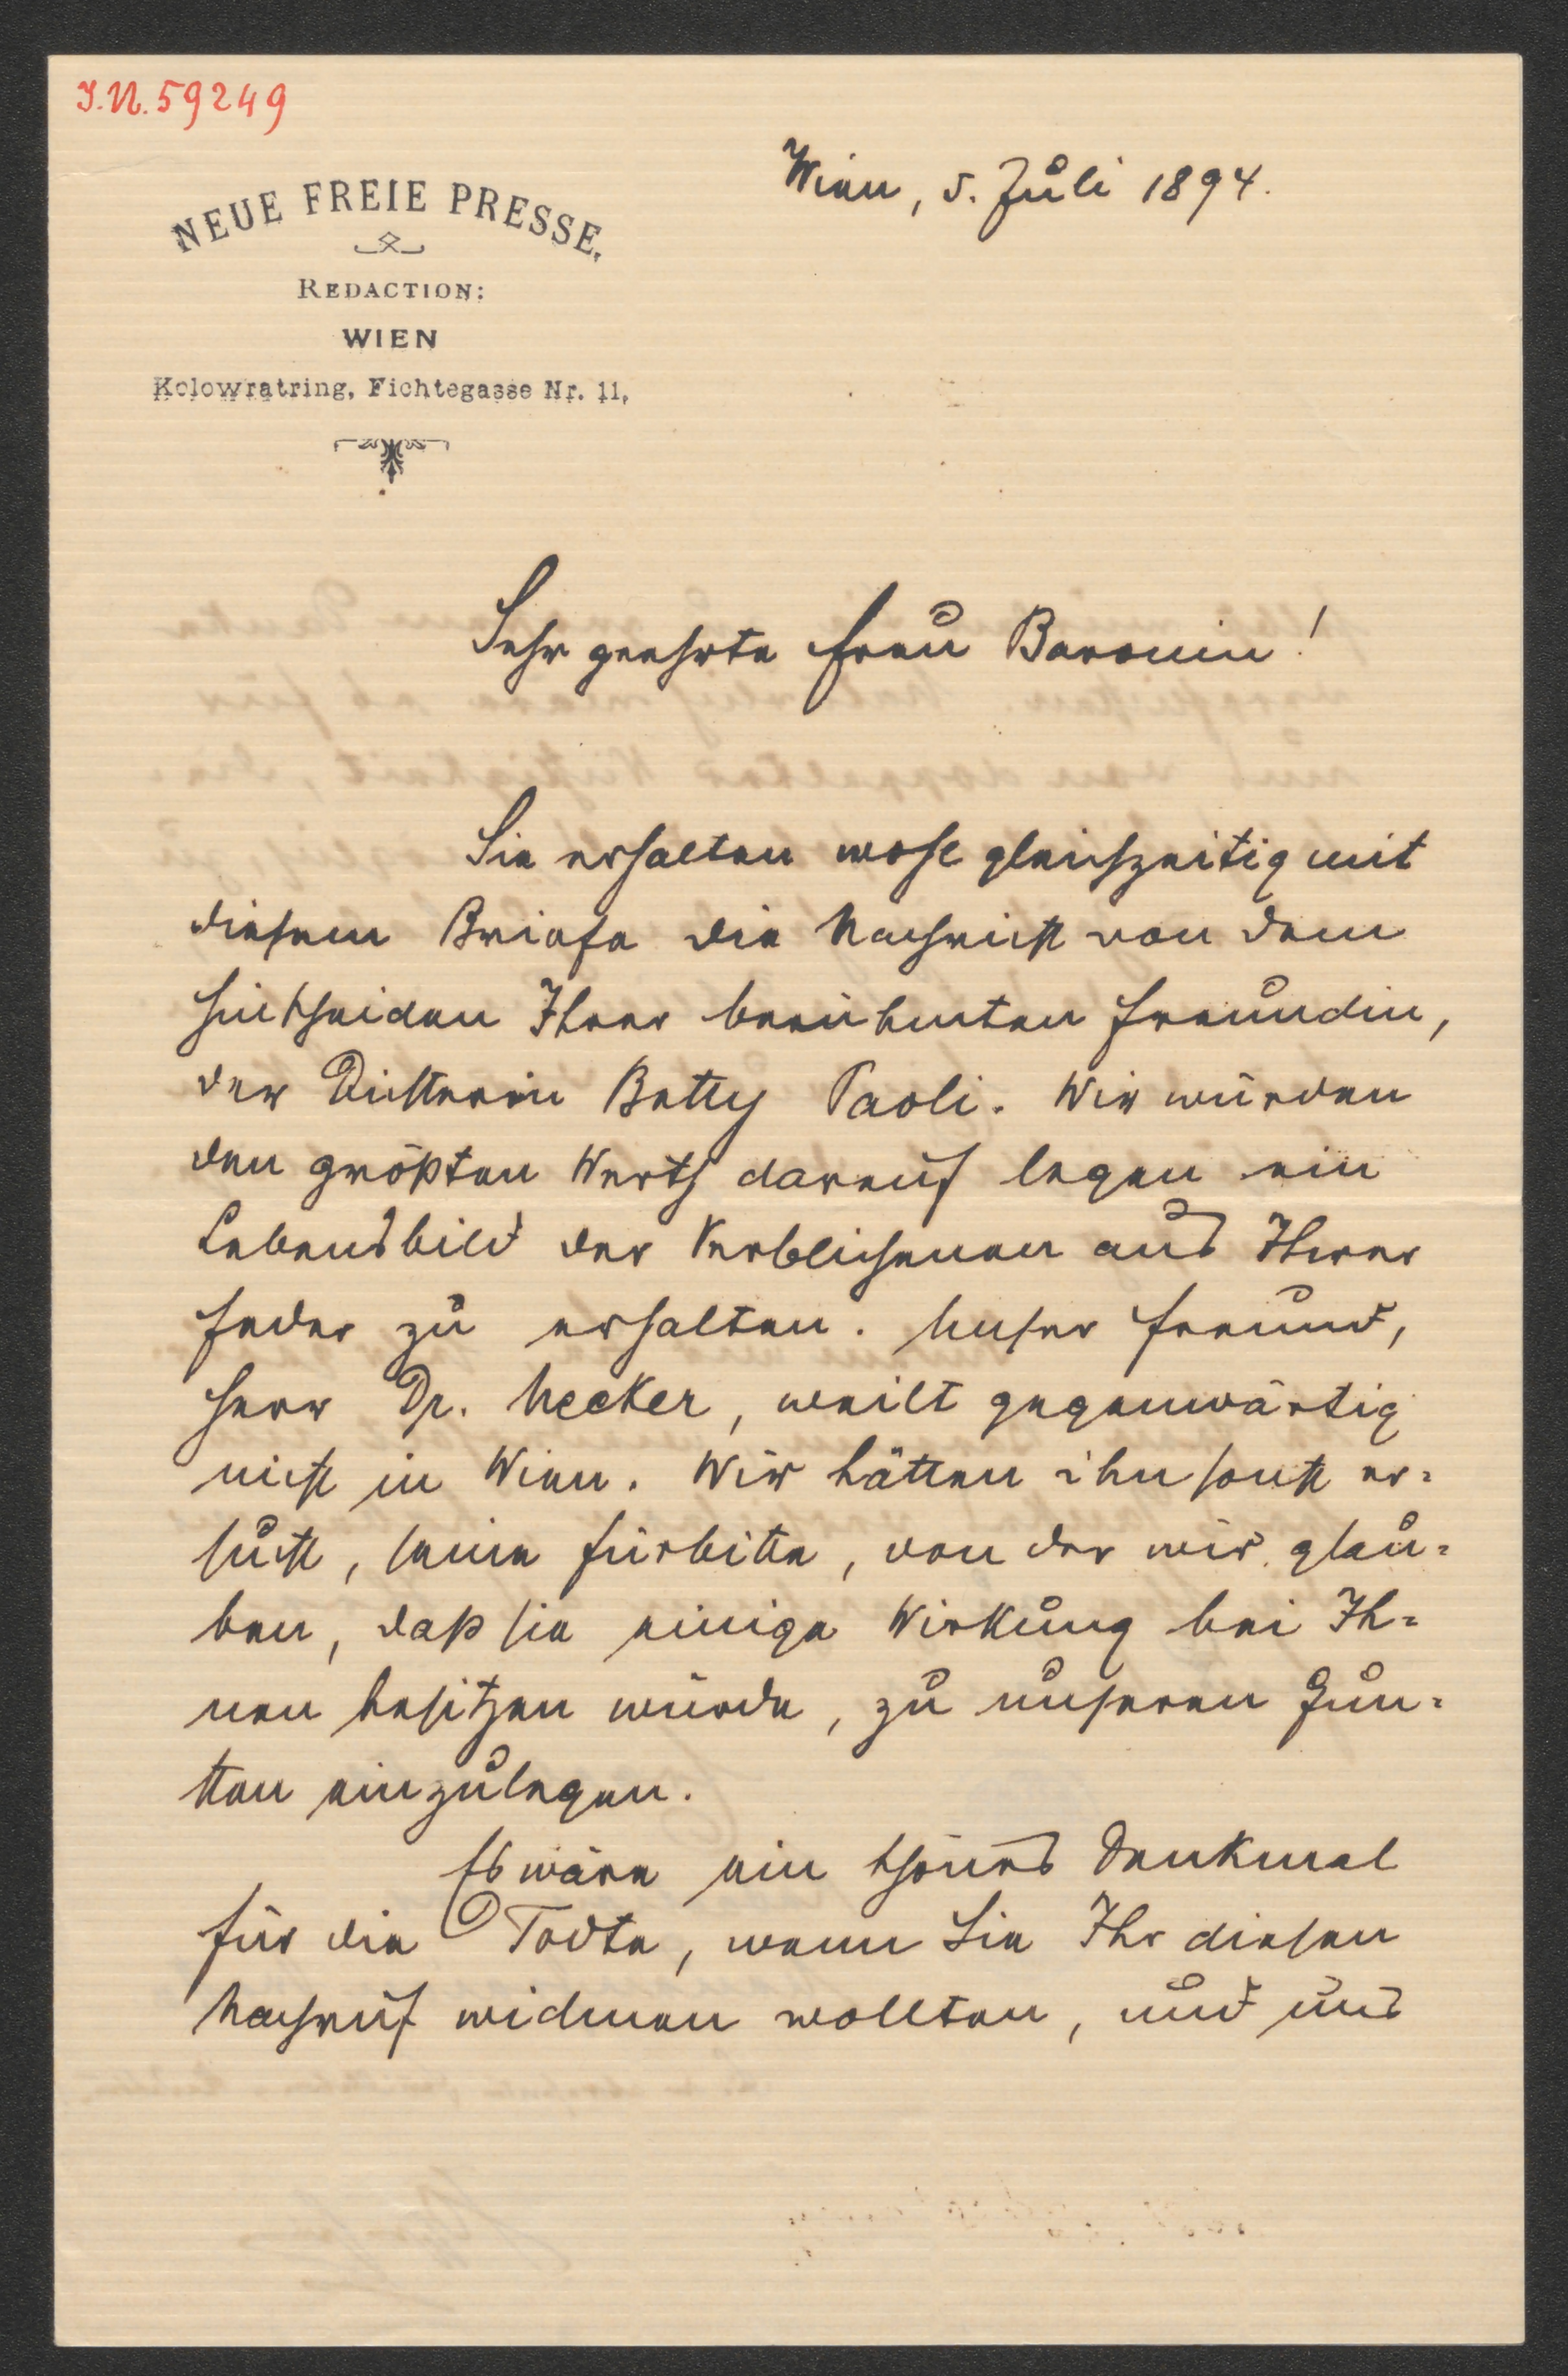 J.N. 59249
Wien, 5. Juli 1894.
NEUE FREIE PRESSE.
REDACTION:
WIEN
Kolowratring, Fichtegasse Nr. 11,
Sehr geehrte Frau Baronin!
Sie erhalten wohl gleichzeitig mit
diesem Briefe die Nachricht von dem
Hinscheiden Ihrer berühmten Freundin,
der Dichterin Betty Paoli. Wir würden
den größten Werth darauf legen ein
Lebensbild der Verblichenen aus Ihrer
Feder zu erhalten. Unser Freund,
Herr Dr. Necker, weilt gegenwärtig
nicht in Wien. Wir hätten ihn sonst er=
sucht, seine Fürbitte, von der wir glau=
ben, daß sie einige Wirkung bei Ih=
nen besitzen würde, zu unseren Gun=
sten einzulegen.
Es wäre ein schönes Denkmal
für die Todte, wenn Sie Ihr diesen
Nachruf widmen wollten, und uns